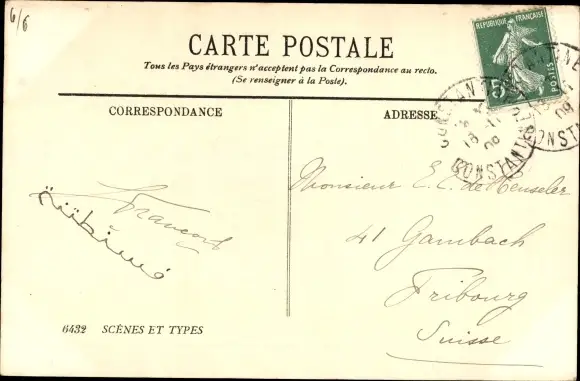 6/6
CARTE POSTALE
Tous les Pays étrangers n'acceptent pas la Correspondance au recto.
(Se renseigner à la Poste).
REPUBLIQUE FRANÇAISE
5
POSTES
CORRESPONDANCE
ADRESSE
CONSTANTINE
09
CONSTANTINE
09
Monsieur E. C. de Heuseler
41 Gambach
Fribourg
Suisse
قسنطينة
6432 SCÈNES ET TYPES